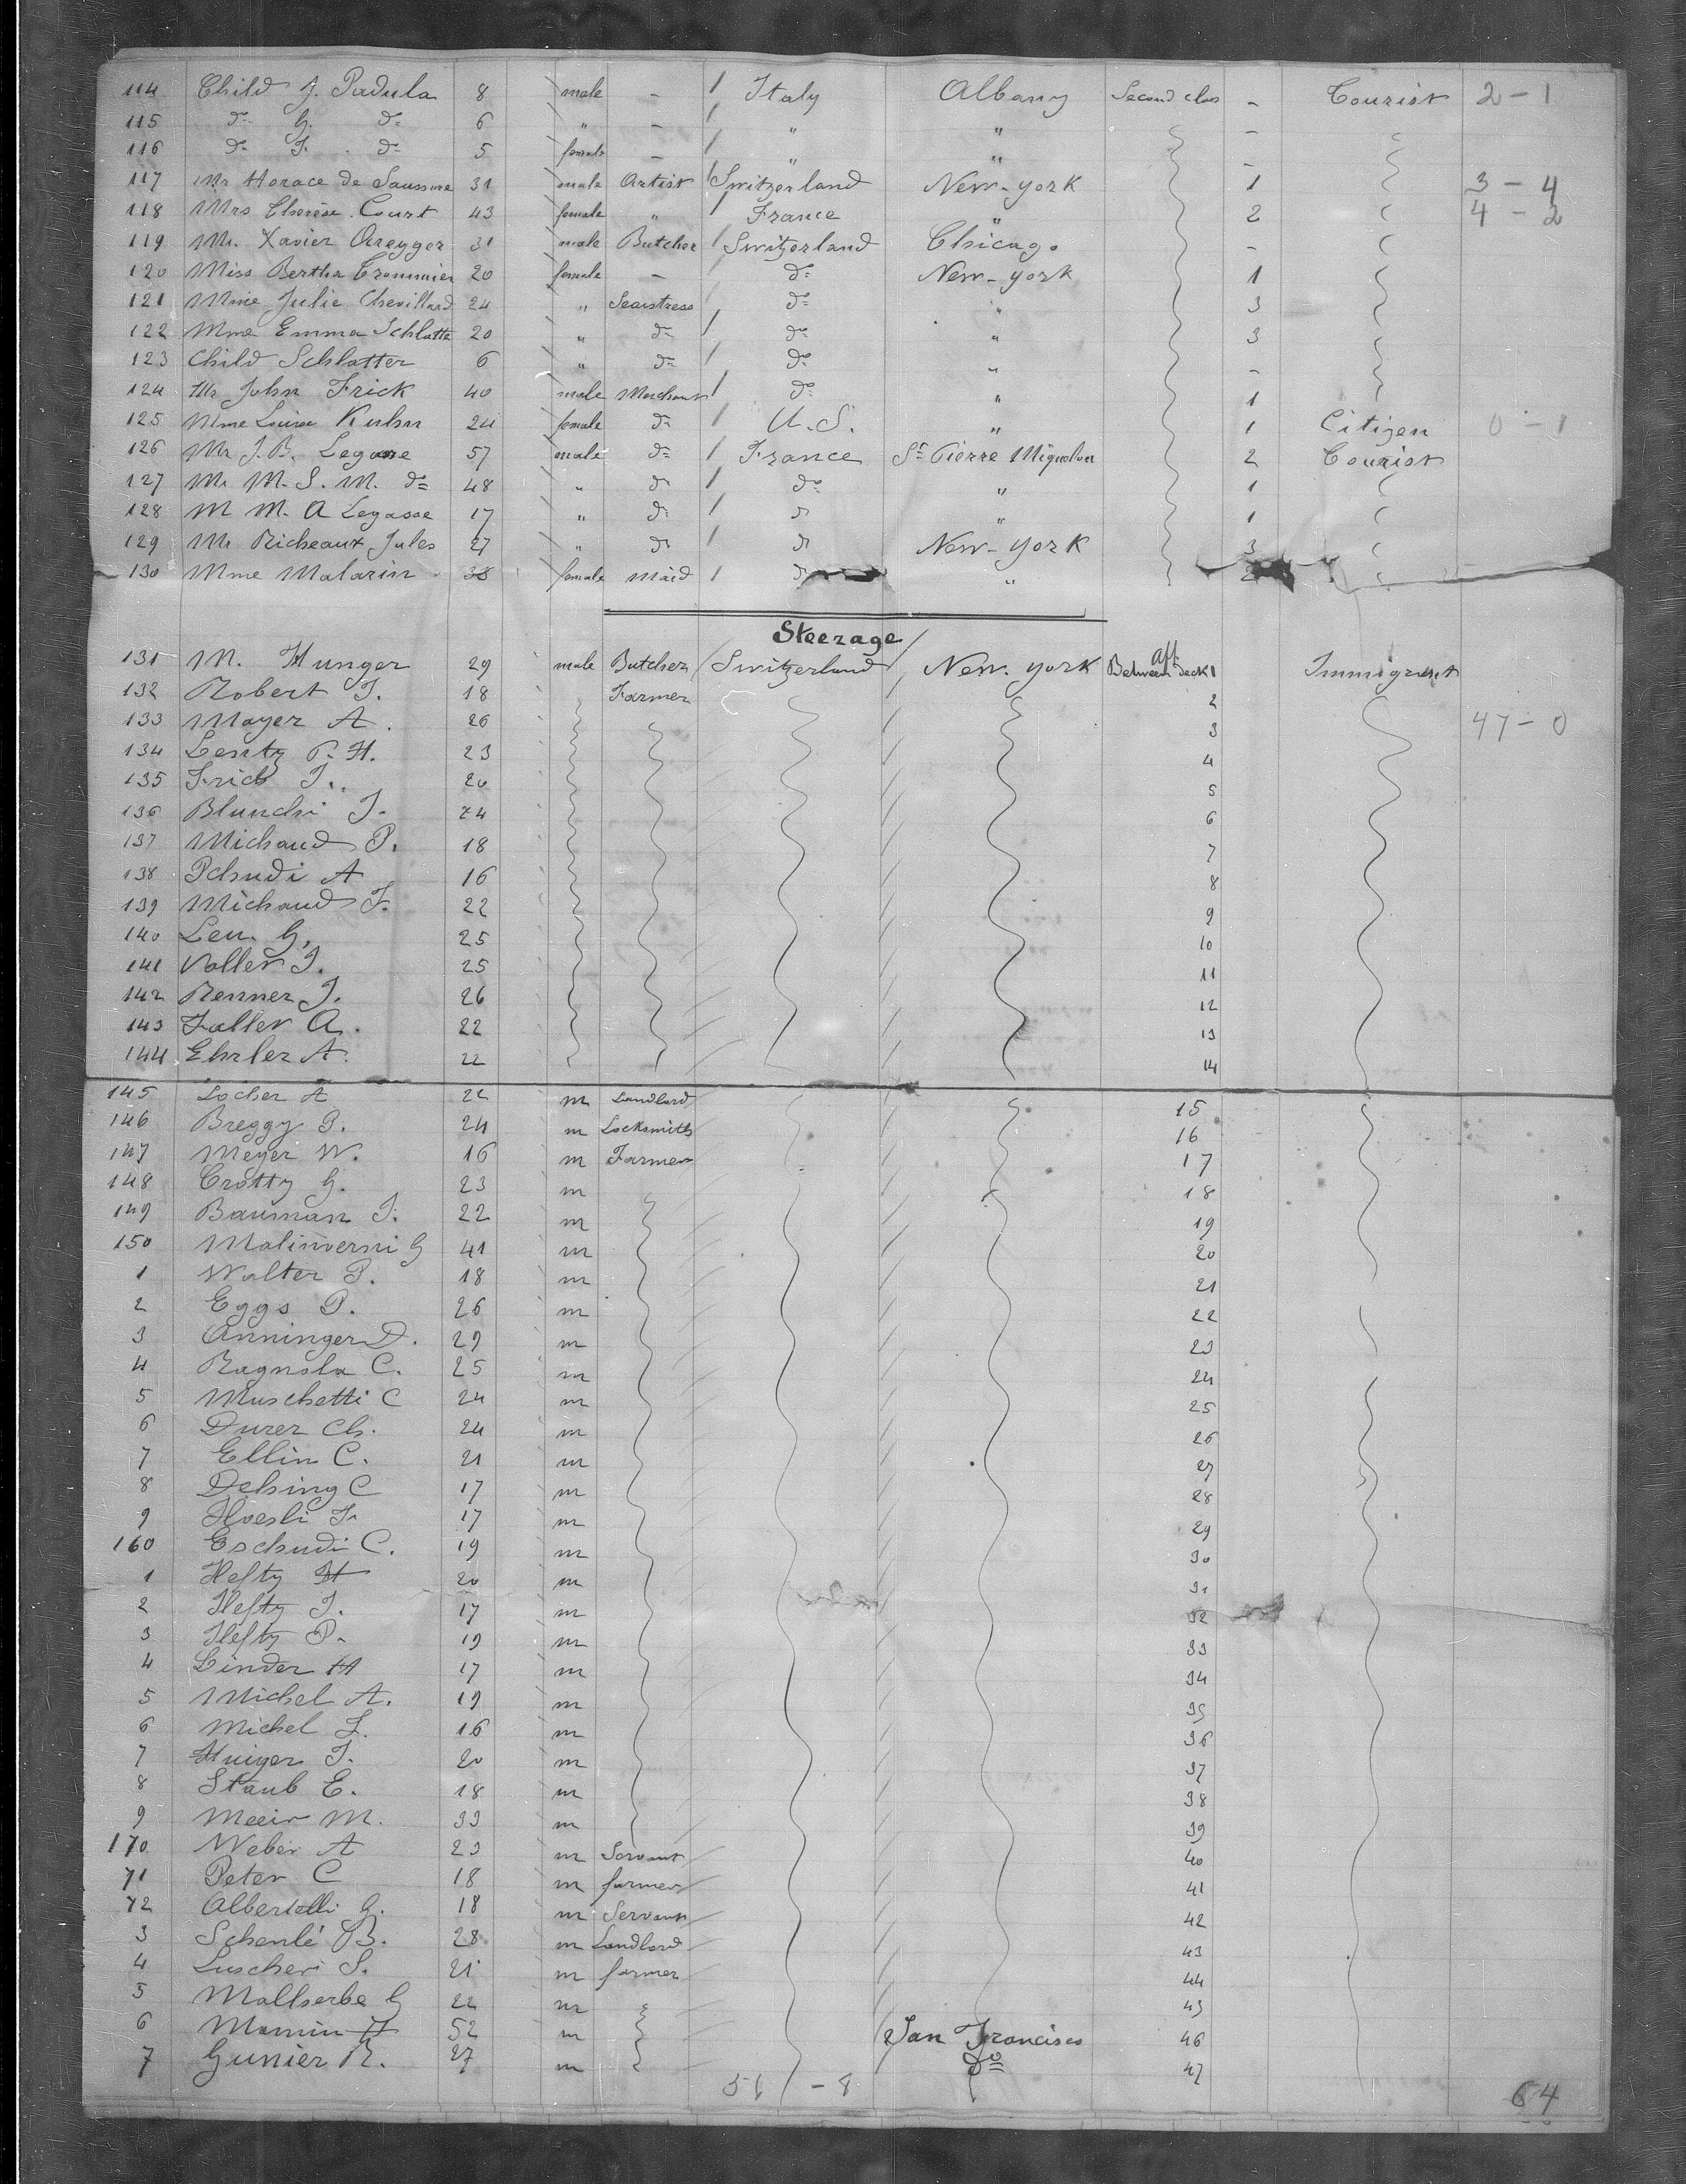 114 Child J. Padula 8 male - / Italy Albany Second class - Tourist 2-1
115 do G. do 6 " - / " " -
116 do F. do 5 female - / " " -
117 Mr Horace de Saussure 31 male Artist / Switzerland New-york 1 3-4
118 Mrs Therèse Court 43 female " / France " 2 4-2
119 Mr. Xavier Aregger 31 male Butcher / Switzerland Chicago -
120 Miss Bertha Trommier 20 female - do New-york 1
121 Mme Julie Chevillard 24 " Seamstress / do " 3
122 Mme Emma Schlatte 20 " do / do " 3
123 Child Schlatter 6 " do / do " -
124 Mr John Frick 40 male Merchant / do " 1
125 Mme Louise Kuhn 24 female do / U.S. " 1 Citizen 0-1
126 Mr J.B. Legasse 57 male do / France St Pierre Miquelon 2 Tourist
127 Mr M.S.M. do 48 " do / do " 1
128 M M. A Legasse 17 " do / do " 1
129 Mr Richeaux Jules 27 " do / do New-york 3
130 Mme Malarin 38 female maid / do " 2
Steerage
131 M. Hunger 29 male Butcher / Switzerland / New-york Aft Between deck 1 Immigrant
132 Robert J. 18 Farmer 2
133 Mayer A. 26 3 47-0
134 Lentz P. H. 23 4
135 Frick J. 20 5
136 Blunchi J. 24 6
137 Michaud P. 18 7
138 Pchudi A 16 8
139 Michaud F. 22 9
140 Leu G, 25 10
141 Voller J. 25 11
142 Renner J. 26 12
143 Faller A. 22 13
144 Ehrler A. 22 14
145 Locher A 22 m Landlord 15
146 Breggy P. 24 m Locksmith 16
147 Meyer W. 16 m Farmer 17
148 Crotty G. 23 m 18
149 Bauman J. 22 m 19
150 Malinverni G 41 m 20
1 Walter P. 18 m 21
2 Eggs P. 26 m 22
3 Anninger D. 29 m 23
4 Ragnola C. 25 m 24
5 Muschetti C 24 m 25
6 Durer Ch. 24 m 26
7 Ellin C. 21 m 27
8 Delsing C 17 m 28
9 Hoesli F. 17 m 29
160 Eschudi C. 19 m 30
1 Hefty H 20 m 31
2 Hefty J. 17 m 32
3 Hefty P. 19 m 33
4 Linder H 17 m 34
5 Michel A. 19 m 35
6 Michel L. 16 m 36
7 Huiger J. 20 m 37
8 Staub E. 18 m 38
9 Meeir M. 33 m 39
170 Weber A 23 m Servant 40
71 Peter C 18 m farmer 41
72 Albertelli G. 18 m Servant 42
3 Schenlé B. 28 m Landlord 43
4 Luscher S. 21 m farmer 44
5 Mallserbe G 22 m 45
6 Momin H 52 m San Francisco 46
7 Gunier R. 27 m do 47
56 - 8 64